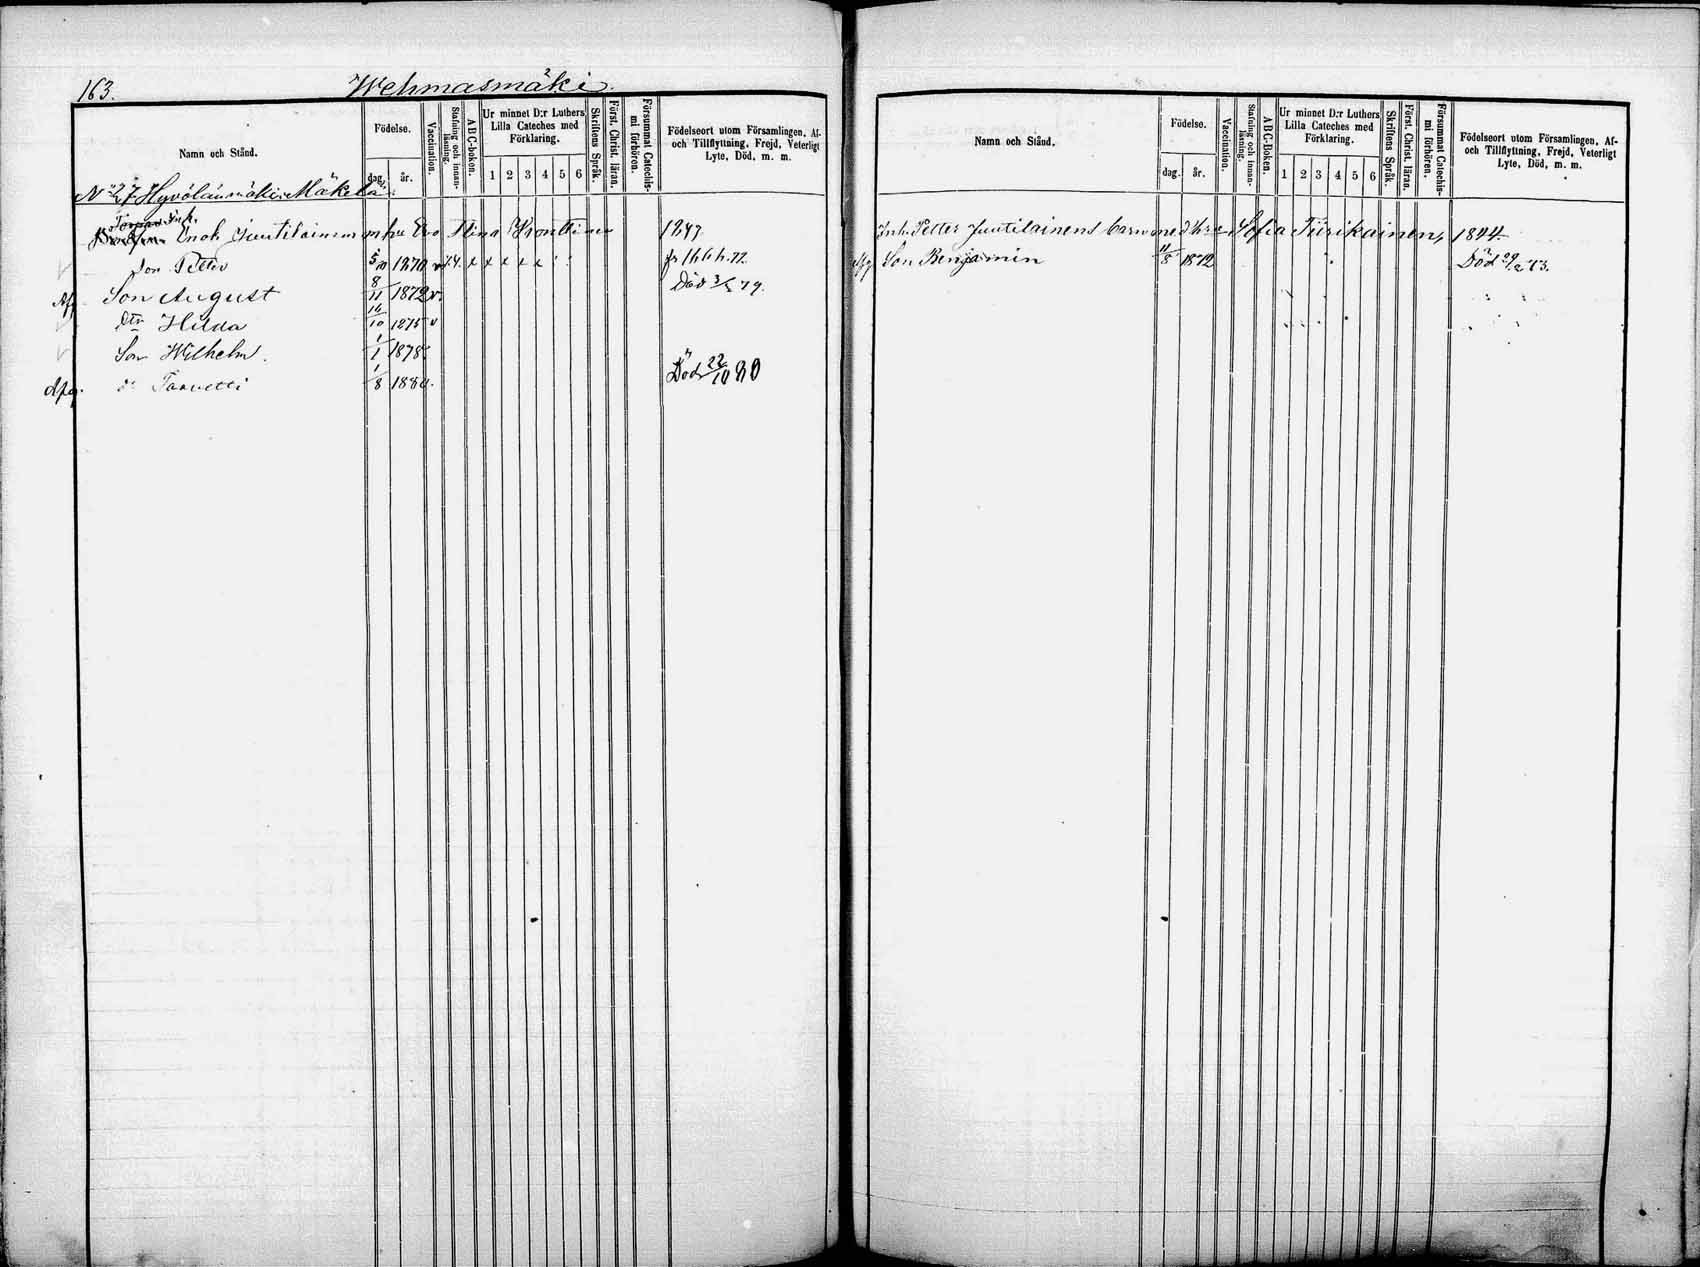 163. Wehmasmäki.
Namn och Stånd.
Födelse.
dag. år.
Vaccination.
Stafning och innanläsning.
ABC-boken.
Ur minnet D:r Luthers Lilla Cateches med Förklaring.
1 2 3 4 5 6
Skriftens Språk.
Först. Christ. läran.
Försummat Catechismi förhören.
Födelseort utom Församlingen, Af- och Tillflyttning, Frejd, Veterligt Lyte, Död, m. m.
N:o 27 Hyvölänmäki Mäkelä
Enok Juutilainens barn Eva Stina Kronttinen 1847
Son Petter 5/10 1870 v x x x x x
Son August 8/11 1872 v. Död 3/5 79.
Dtr Hilda 16/10 1875 v
Son Wilhelm. 1/1 1878.
Afg. d:o Taavetti 1/8 1880. Död 22/10 80
Namn och Stånd.
Födelse.
dag. år.
Vaccination.
Stafning och innanläsning.
ABC-Boken.
Ur minnet D:r Luthers Lilla Cateches med Förklaring.
1 2 3 4 5 6
Skriftens Språk.
Först. Christ. läran.
Försummat Catechismi förhören.
Födelseort utom Församlingen, Af- och Tillflyttning, Frejd, Veterligt Lyte, Död, m. m.
Inh. Petter Juutilainens barn med h:u Sofia Tiirikainen, 1844.
Afg Son Benjamin 11/8 1872 Död 29/2 73.